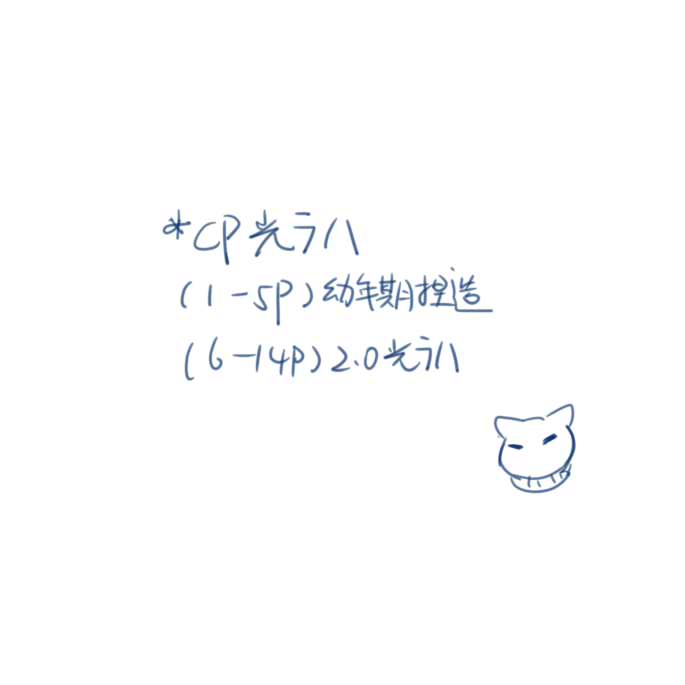 *CP光ラ八
(1-5P)幼年期捏造
(6-14P)2.0光ラ八